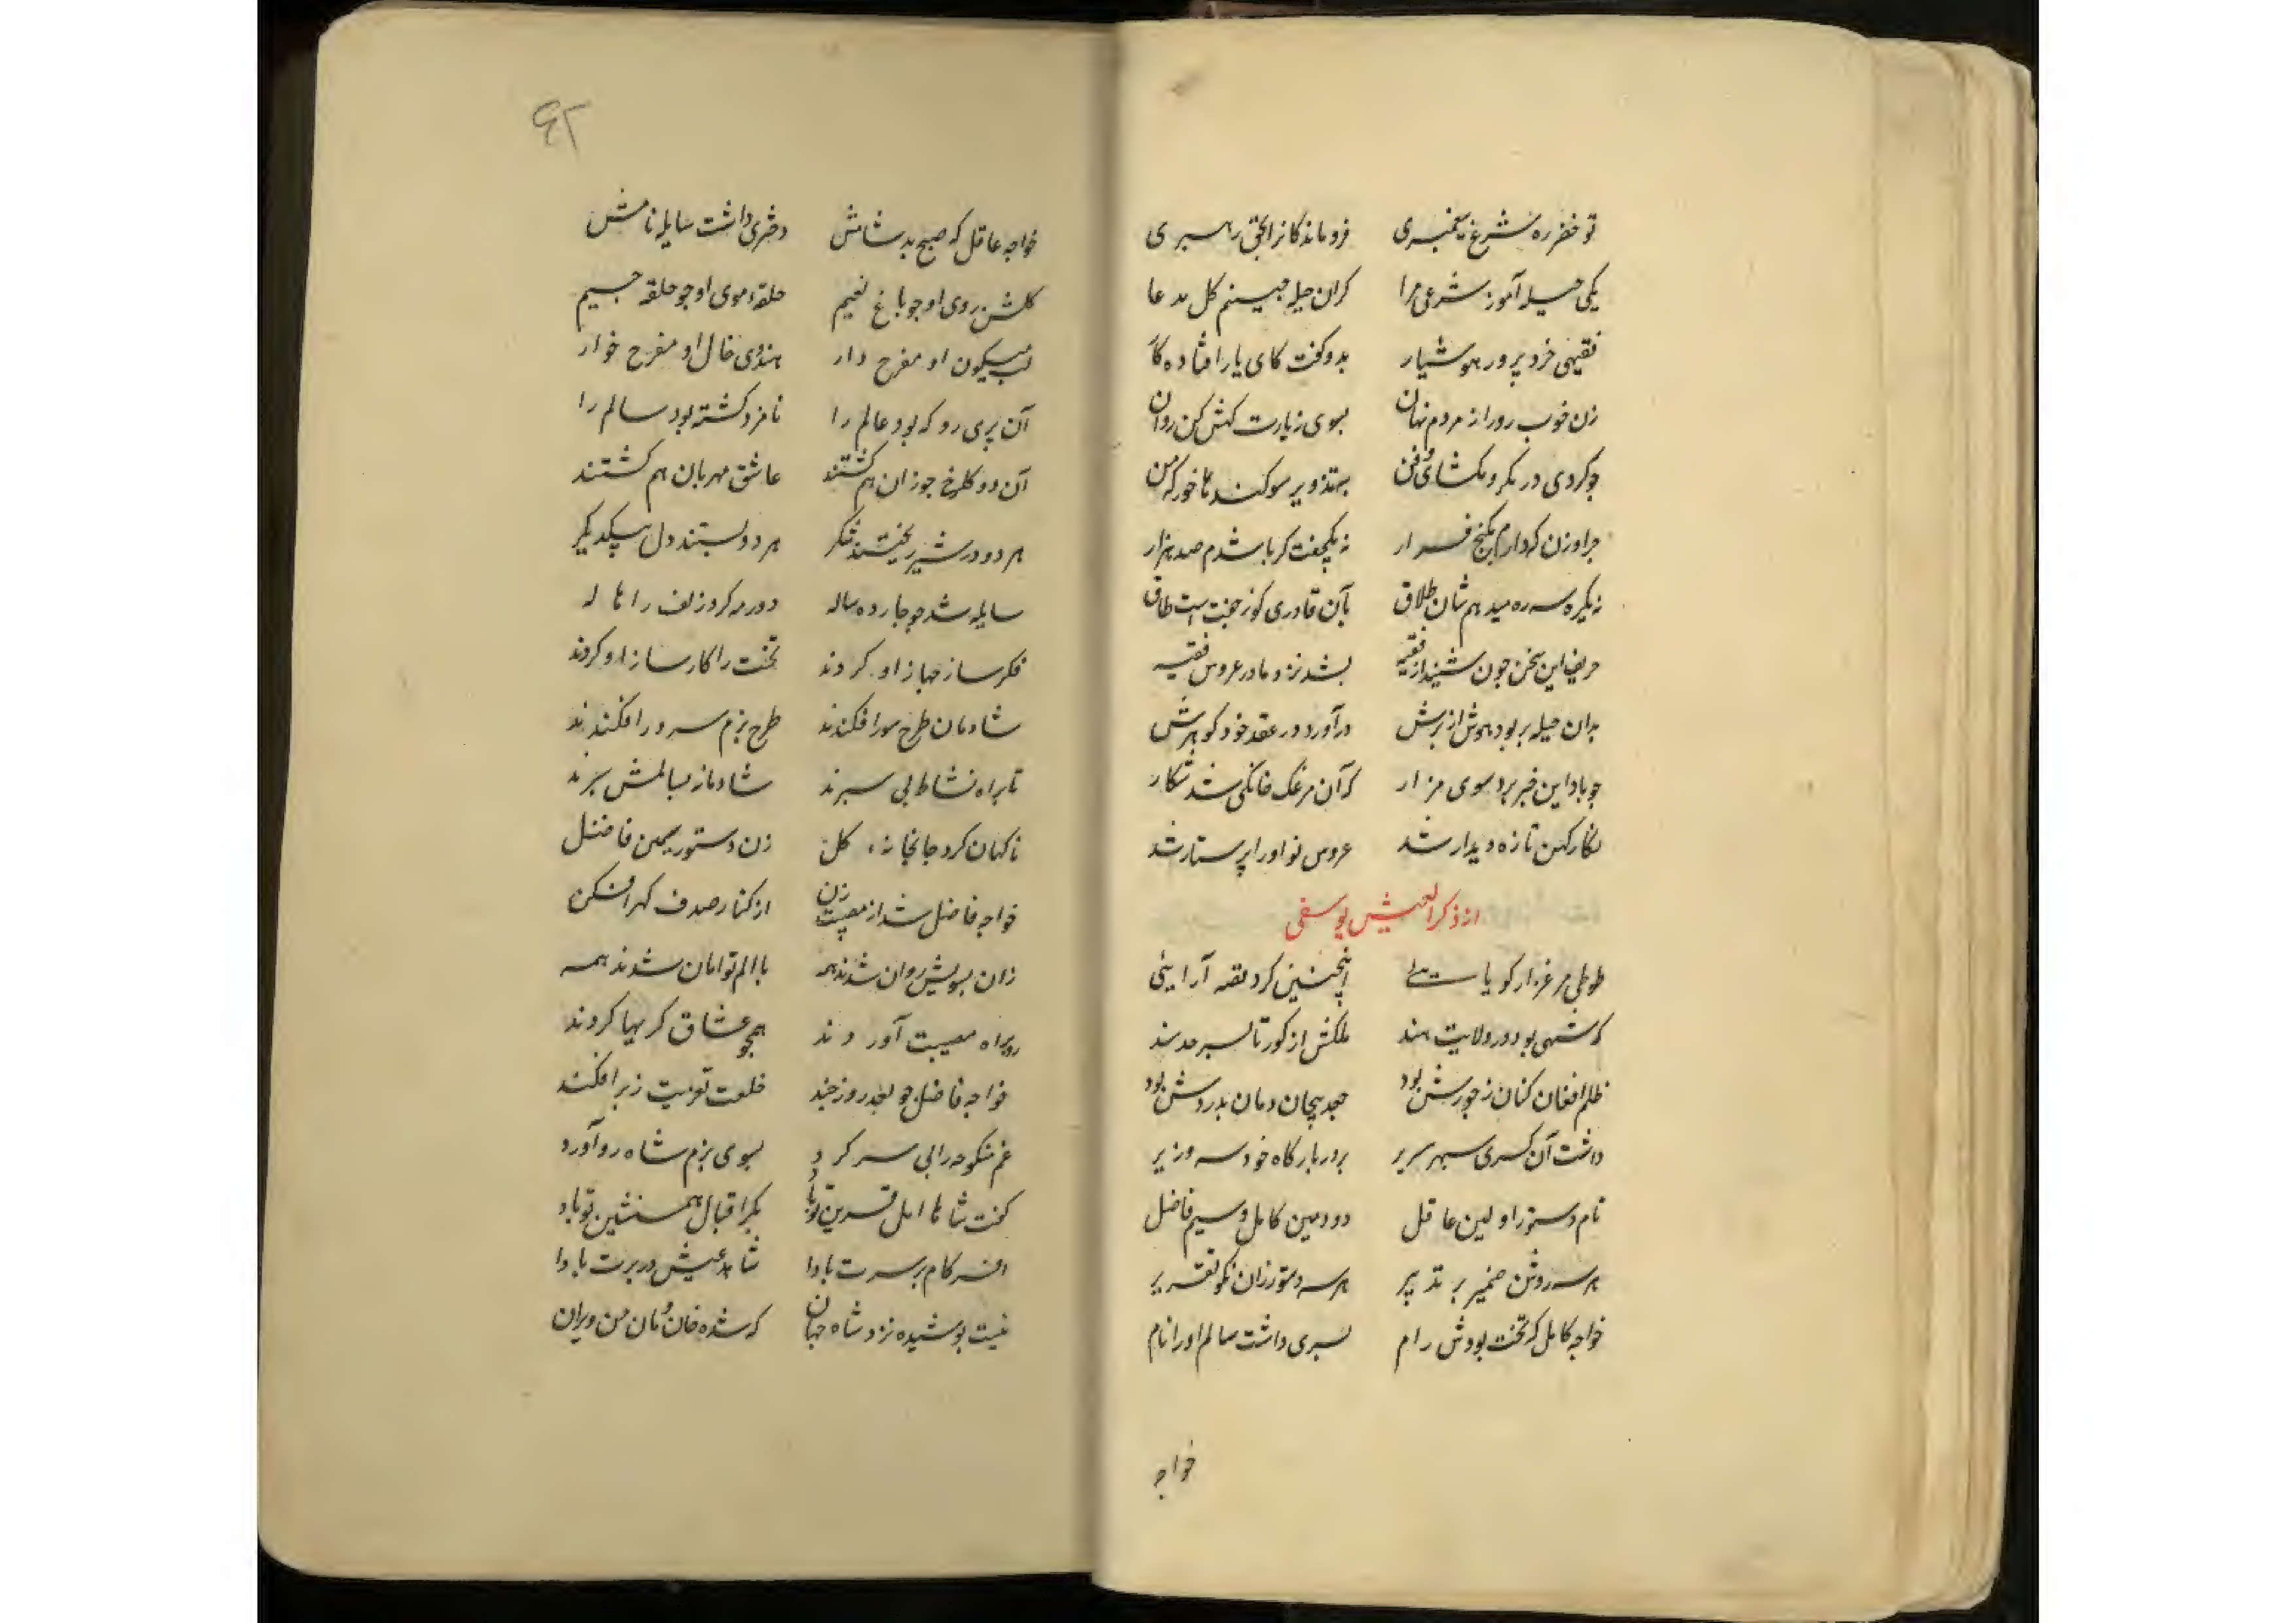 تو خضر ره شرع پیغمبری فروماندکانرا بحق رهبری
یکی حیله آموز شرعی مرا کزان حیله چینم کل مدعا
فقیهی خرد پرور هوشیار بدو کفت کای یار افتاده کار
زن خوب رو را ز مردم نهان بسوی زیارت کهش کن روان
چو کردی در مکر و بکشای فن بتزویر سوکند ها خور که من
جز او زن که دارم بکنج مزار نه یکجفت کر باشدم صد هزار
نه یکره سه ره میدهم شان طلاق بآن قادری کو ز جفت است طاق
حریف این سخن چون شنید از فقیه بشد نزد مادر عروس فقیه
بدان حیله بربود هوش از برش درآورد در عقد خود کوهرش
چو باد این خبر برد سوی مزار که آن مرغک خانکی شد شکار
نکار کهن تازه دیدار شد عروس نو او را پرستار شد
از ذکر العیش یوسفی
طوطی مرغزار کویایی اینچنین کرد نقه آرایئی
که شهی بود در ولایت هند ملکش از کور تا بسر حد سند
ظلم افغان کنان ز جورش بود جعد پیچان دمان بدورش بود
داشت آن کسری سپهر سریر بر در بارکاه خود سه وزیر
نام دستور اولین عاقل دودمین کامل و سیم فاضل
هر سه روشن ضمیر بر تدبیر هر سه دستور زان نکو تقریر
خواجه کامل که تخت بودش رام پسری داشت سالم او را نام
خواجه
۴۲
خواجه عاقل که صبح بد شامش دختری داشت سایله نامش
کلشن روی او چو باغ نعیم حلقهء موی او چو حلقه جیم
لب میکون او مفرح دار هندوی خال او مفرح خوار
آن پری رو که بود عالم را نامزد کشته بود سالم را
آن دو کلرخ چو زان هم کشتند عاشق مهربان هم کشتند
هر دو در شیر ریختند شکر هر دو بستند دل بیکدیکر
سایله شد چو چارده ساله دور مه کرد زلف را هاله
فکر ساز جهاز او کردند تخت را کارساز او کردند
شادمان طرح سور افکندند طرح بزم سرور افکندند
تا براه نشاط پی سپرند شادمانه بسالمش سپرند
ناکهان کرد جا بخانهء کل زن دستور سیمین فاضل
خواجه فاضل شد از مصیبت زن از کنار صدف کهر افکن
زان بسویش روان شدند همه با الم توامان شدند همه
رو براه مصیبت آوردند همچو عشاق کریها کردند
خواجه فاضل چو بعد روز چند خلعت تعزیت ز بر افکند
غم منکوحه را پی سر کرد بسوی بزم شاه رو آورد
کفت شاها امل قرین تو باد بکر اقبال همنشین تو باد
افسر کام بر سرت بادا شاهد عیش در برت بادا
نیست پوشیده نزد شاه جهان که شده خان و مان من ویران